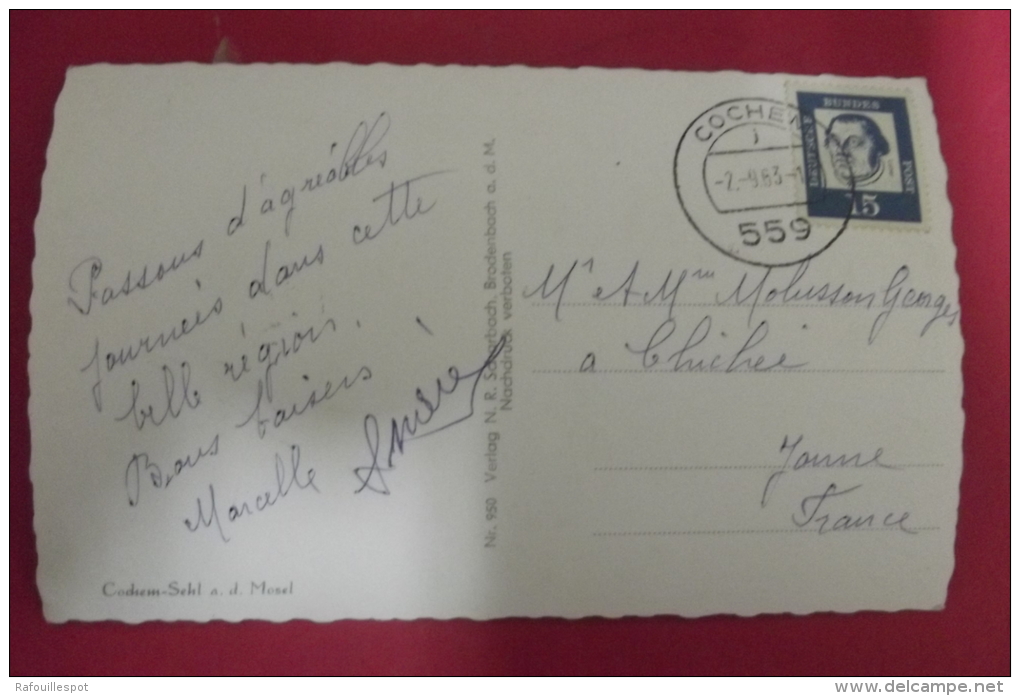 Passons d'agréables
journées dans cette
belle région.
Bons baisers
Marcelle André
Cochem-Sehl a. d. Mosel
Nr. 950 Verlag N. R. Scharbach, Brodenbach a. d. M.
Nachdruck verboten
COCHEM
j
-2.-9.63-1
559
DEUTSCHE
BUNDES
POST
15
Mr et Mme Molusson Georges
a Chichée
Yonne
France
Rafouillespot
delcampe.net